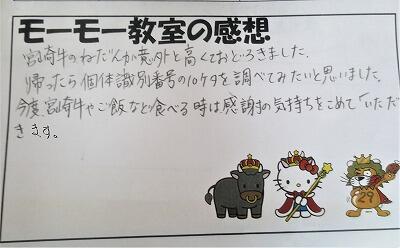 モーモー教室の感想
宮崎牛のねだんが意外と高くておどろきました。
帰ったら個体識別番号の10ケタを調べてみたいと思いました。
今度、宮崎牛やご飯など食べる時は感謝の気持ちをこめて「いただ
きます。
29